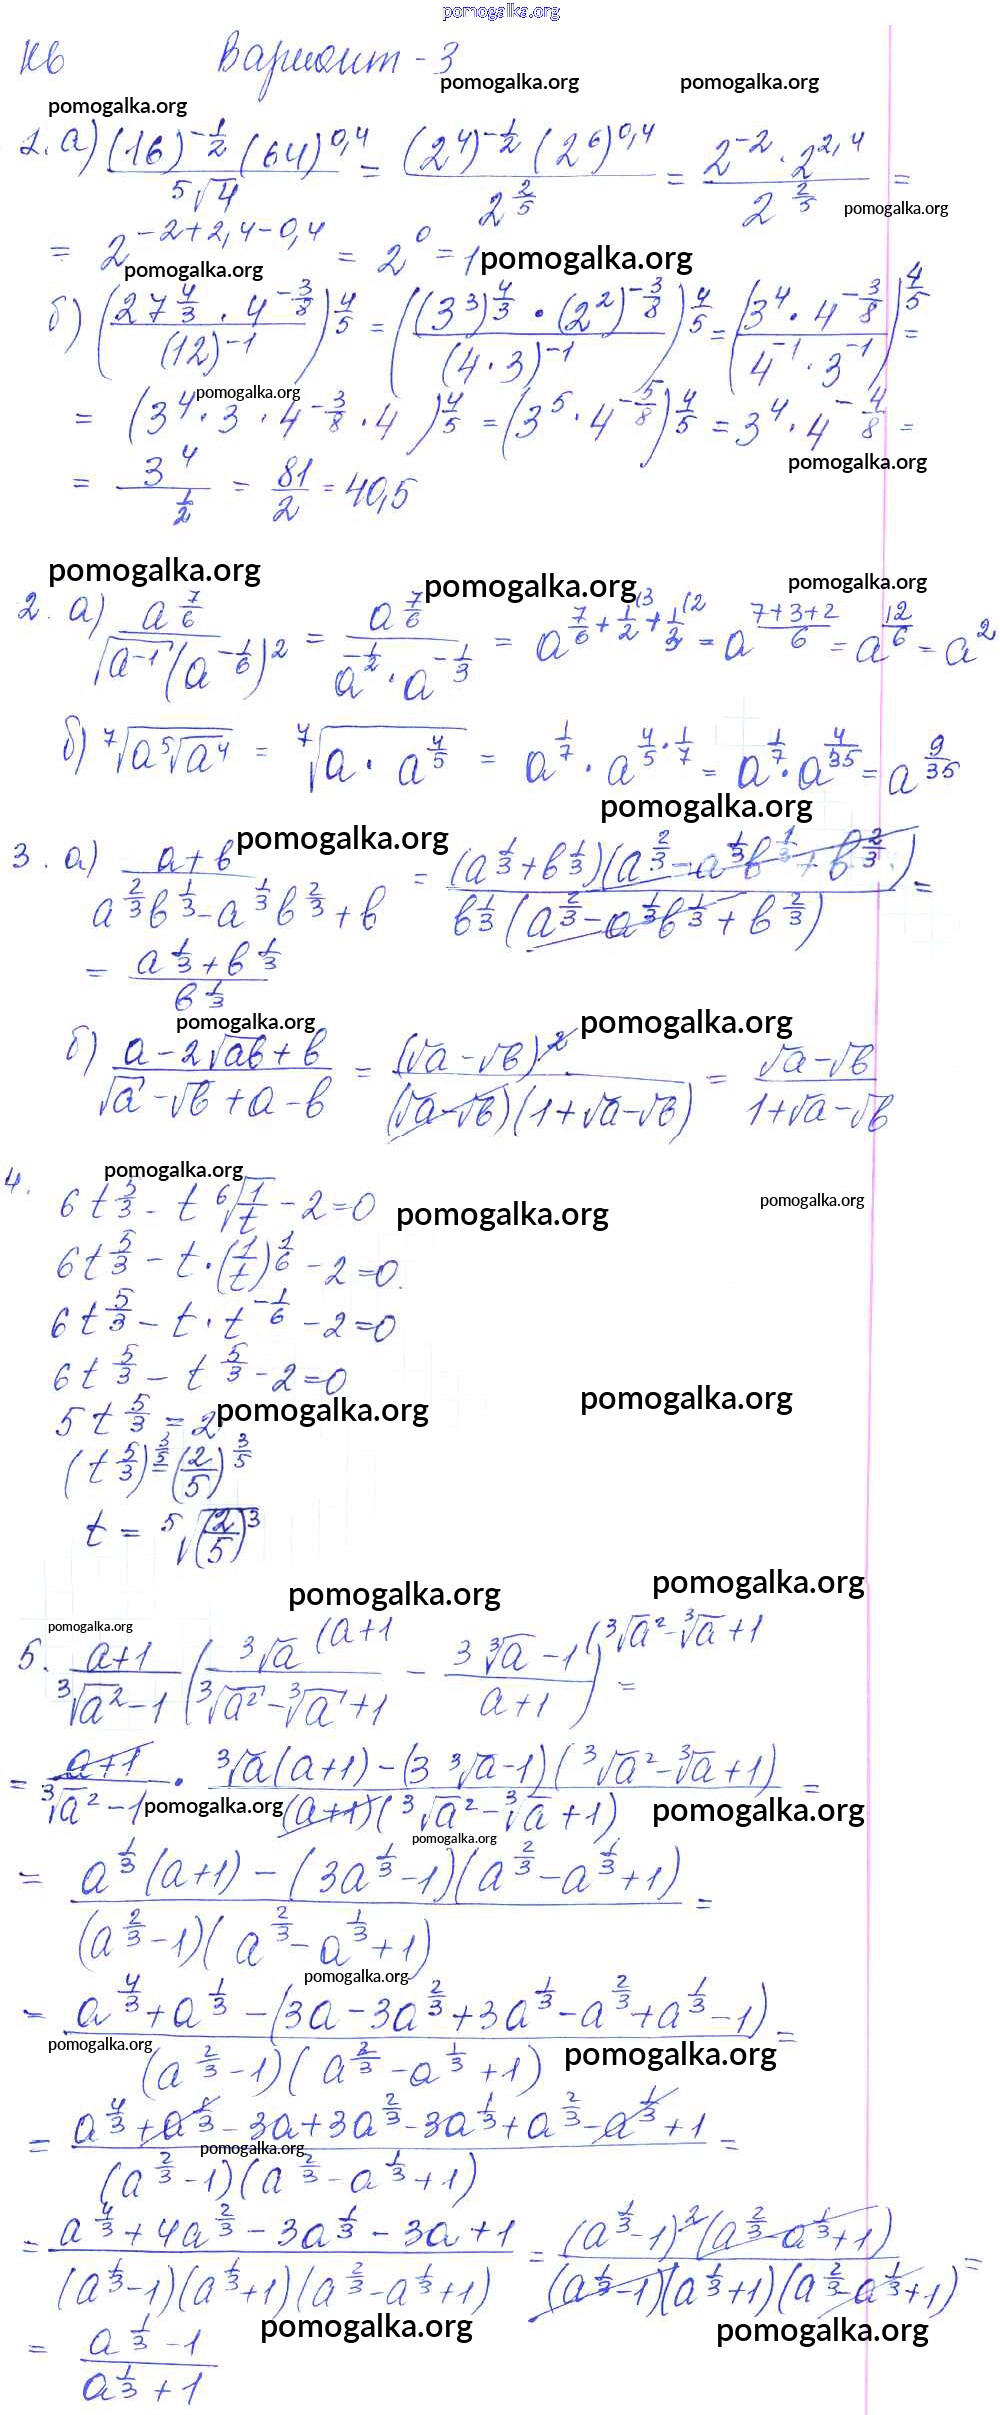 pomogalka.org
К6 Вариант - 3
pomogalka.org pomogalka.org
pomogalka.org
1. а) ((16)^{-1/2} (64)^{0,4}) / ⁵√4 = ((2^4)^{-1/2} (2^6)^{0,4}) / 2^{2/5} = (2^{-2} · 2^{2,4}) / 2^{2/5} =
pomogalka.org
= 2^{-2+2,4-0,4} = 2^0 = 1
pomogalka.org pomogalka.org
б) ((27^{4/3} · 4^{-3/8}) / (12)^{-1})^{4/5} = (((3^3)^{4/3} · (2^2)^{-3/8}) / (4 · 3)^{-1})^{4/5} = ((3^4 · 4^{-3/8}) / (4^{-1} · 3^{-1}))^{4/5} =
pomogalka.org
= (3^4 · 3 · 4^{-3/8} · 4)^{4/5} = (3^5 · 4^{-5/8})^{4/5} = 3^4 · 4^{-4/8} =
pomogalka.org
= 3^4 / (1/2) = 81/2 = 40,5
pomogalka.org pomogalka.org pomogalka.org
2. а) a^{7/6} / (√a^{-1} (a^{-1/6})^2) = a^{7/6} / (a^{-1/2} · a^{-1/3}) = a^{7/6 + 1/2 (3 + 1/3 (2} = a^{(7+3+2)/6} = a^{12/6} = a^2
б) ⁷√(a ⁵√a^4) = ⁷√(a · a^{4/5}) = a^{1/7} · a^{4/5 · 1/7} = a^{1/7} · a^{4/35} = a^{9/35}
pomogalka.org
pomogalka.org
3. а) (a+b) / (a^{2/3} b^{1/3} - a^{1/3} b^{2/3} + b) = ((a^{1/3} + b^{1/3})(a^{2/3} - a^{1/3} b^{1/3} + b^{2/3})) / (b^{1/3} (a^{2/3} - a^{1/3} b^{1/3} + b^{2/3})) =
= (a^{1/3} + b^{1/3}) / b^{1/3}
pomogalka.org pomogalka.org
б) (a - 2√ab + b) / (√a - √b + a - b) = (√a - √b)^2 / ((√a - √b)(1 + √a - √b)) = (√a - √b) / (1 + √a - √b)
pomogalka.org
4. 6t^{5/3} - t ⁶√(1/t) - 2 = 0
pomogalka.org pomogalka.org
6t^{5/3} - t · (1/t)^{1/6} - 2 = 0.
6t^{5/3} - t · t^{-1/6} - 2 = 0
6t^{5/3} - t^{5/3} - 2 = 0
pomogalka.org
5t^{5/3} = 2
pomogalka.org
(t^{5/3})^{3/5} = (2/5)^{3/5}
t = ⁵√(2/5)^3
pomogalka.org pomogalka.org
pomogalka.org
5. (a+1) / (³√a² - 1) (³√a (a+1 / (³√a² - ³√a + 1) - (3 ³√a - 1 (³√a² - ³√a + 1) / (a+1)) =
= (a+1) / (³√a² - 1) · (³√a (a+1) - (3 ³√a - 1)(³√a² - ³√a + 1)) / ((a+1)(³√a² - ³√a + 1)) =
pomogalka.org pomogalka.org
pomogalka.org
= (a^{1/3} (a+1) - (3a^{1/3} - 1)(a^{2/3} - a^{1/3} + 1)) / ((a^{2/3} - 1)(a^{2/3} - a^{1/3} + 1)) =
pomogalka.org
= (a^{4/3} + a^{1/3} - (3a - 3a^{2/3} + 3a^{1/3} - a^{2/3} + a^{1/3} - 1)) / ((a^{2/3} - 1)(a^{2/3} - a^{1/3} + 1)) =
pomogalka.org pomogalka.org
= (a^{4/3} + a^{1/3} - 3a + 3a^{2/3} - 3a^{1/3} + a^{2/3} - a^{1/3} + 1) / ((a^{2/3} - 1)(a^{2/3} - a^{1/3} + 1)) =
pomogalka.org
= (a^{4/3} + 4a^{2/3} - 3a^{1/3} - 3a + 1) / ((a^{1/3} - 1)(a^{1/3} + 1)(a^{2/3} - a^{1/3} + 1)) = ((a^{1/3} - 1)^2 (a^{2/3} - a^{1/3} + 1)) / ((a^{1/3} - 1)(a^{1/3} + 1)(a^{2/3} - a^{1/3} + 1)) =
pomogalka.org pomogalka.org
= (a^{1/3} - 1) / (a^{1/3} + 1)